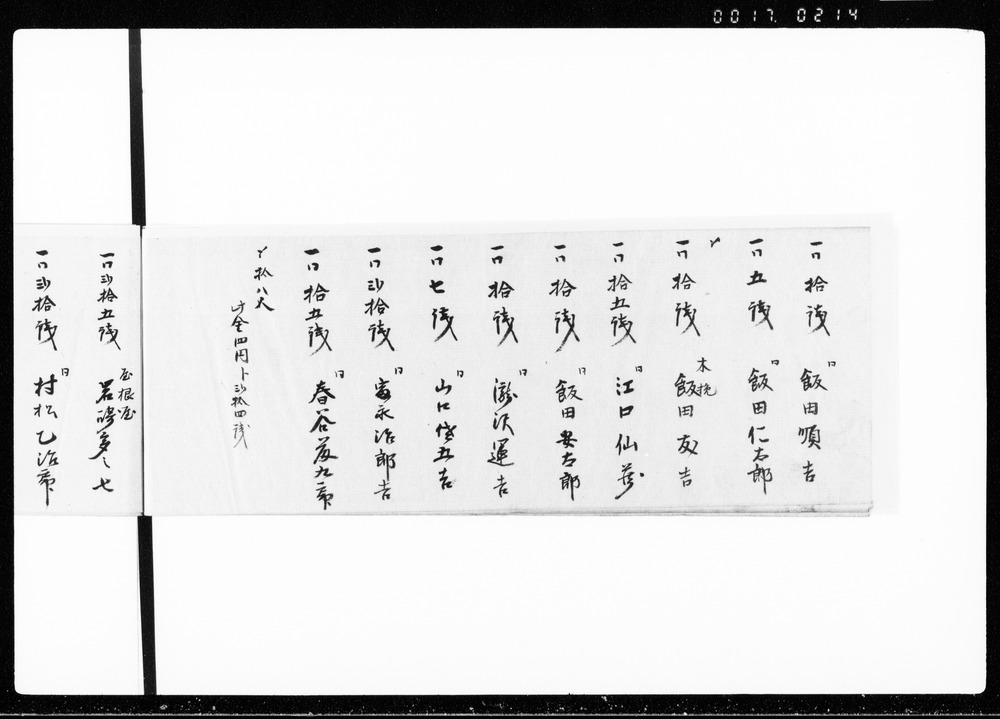 0017.0214
一口拾銭 同 飯田順吉
一口五銭 同 飯田仁太郎
一口拾銭 木挽 飯田友吉
一口拾五銭 同 江口仙蔵
一口拾銭 同 飯田安太郎
一口拾銭 同 瀧沢運吉
一口七銭 同 山口 五吉
一口弐拾銭 同 富永治郎吉
一口拾五銭 同 春谷 九
〆拾八人
計金四円ト弐拾四銭
一口弐拾五銭 屋根屋 七
一口弐拾銭 同 村松乙治